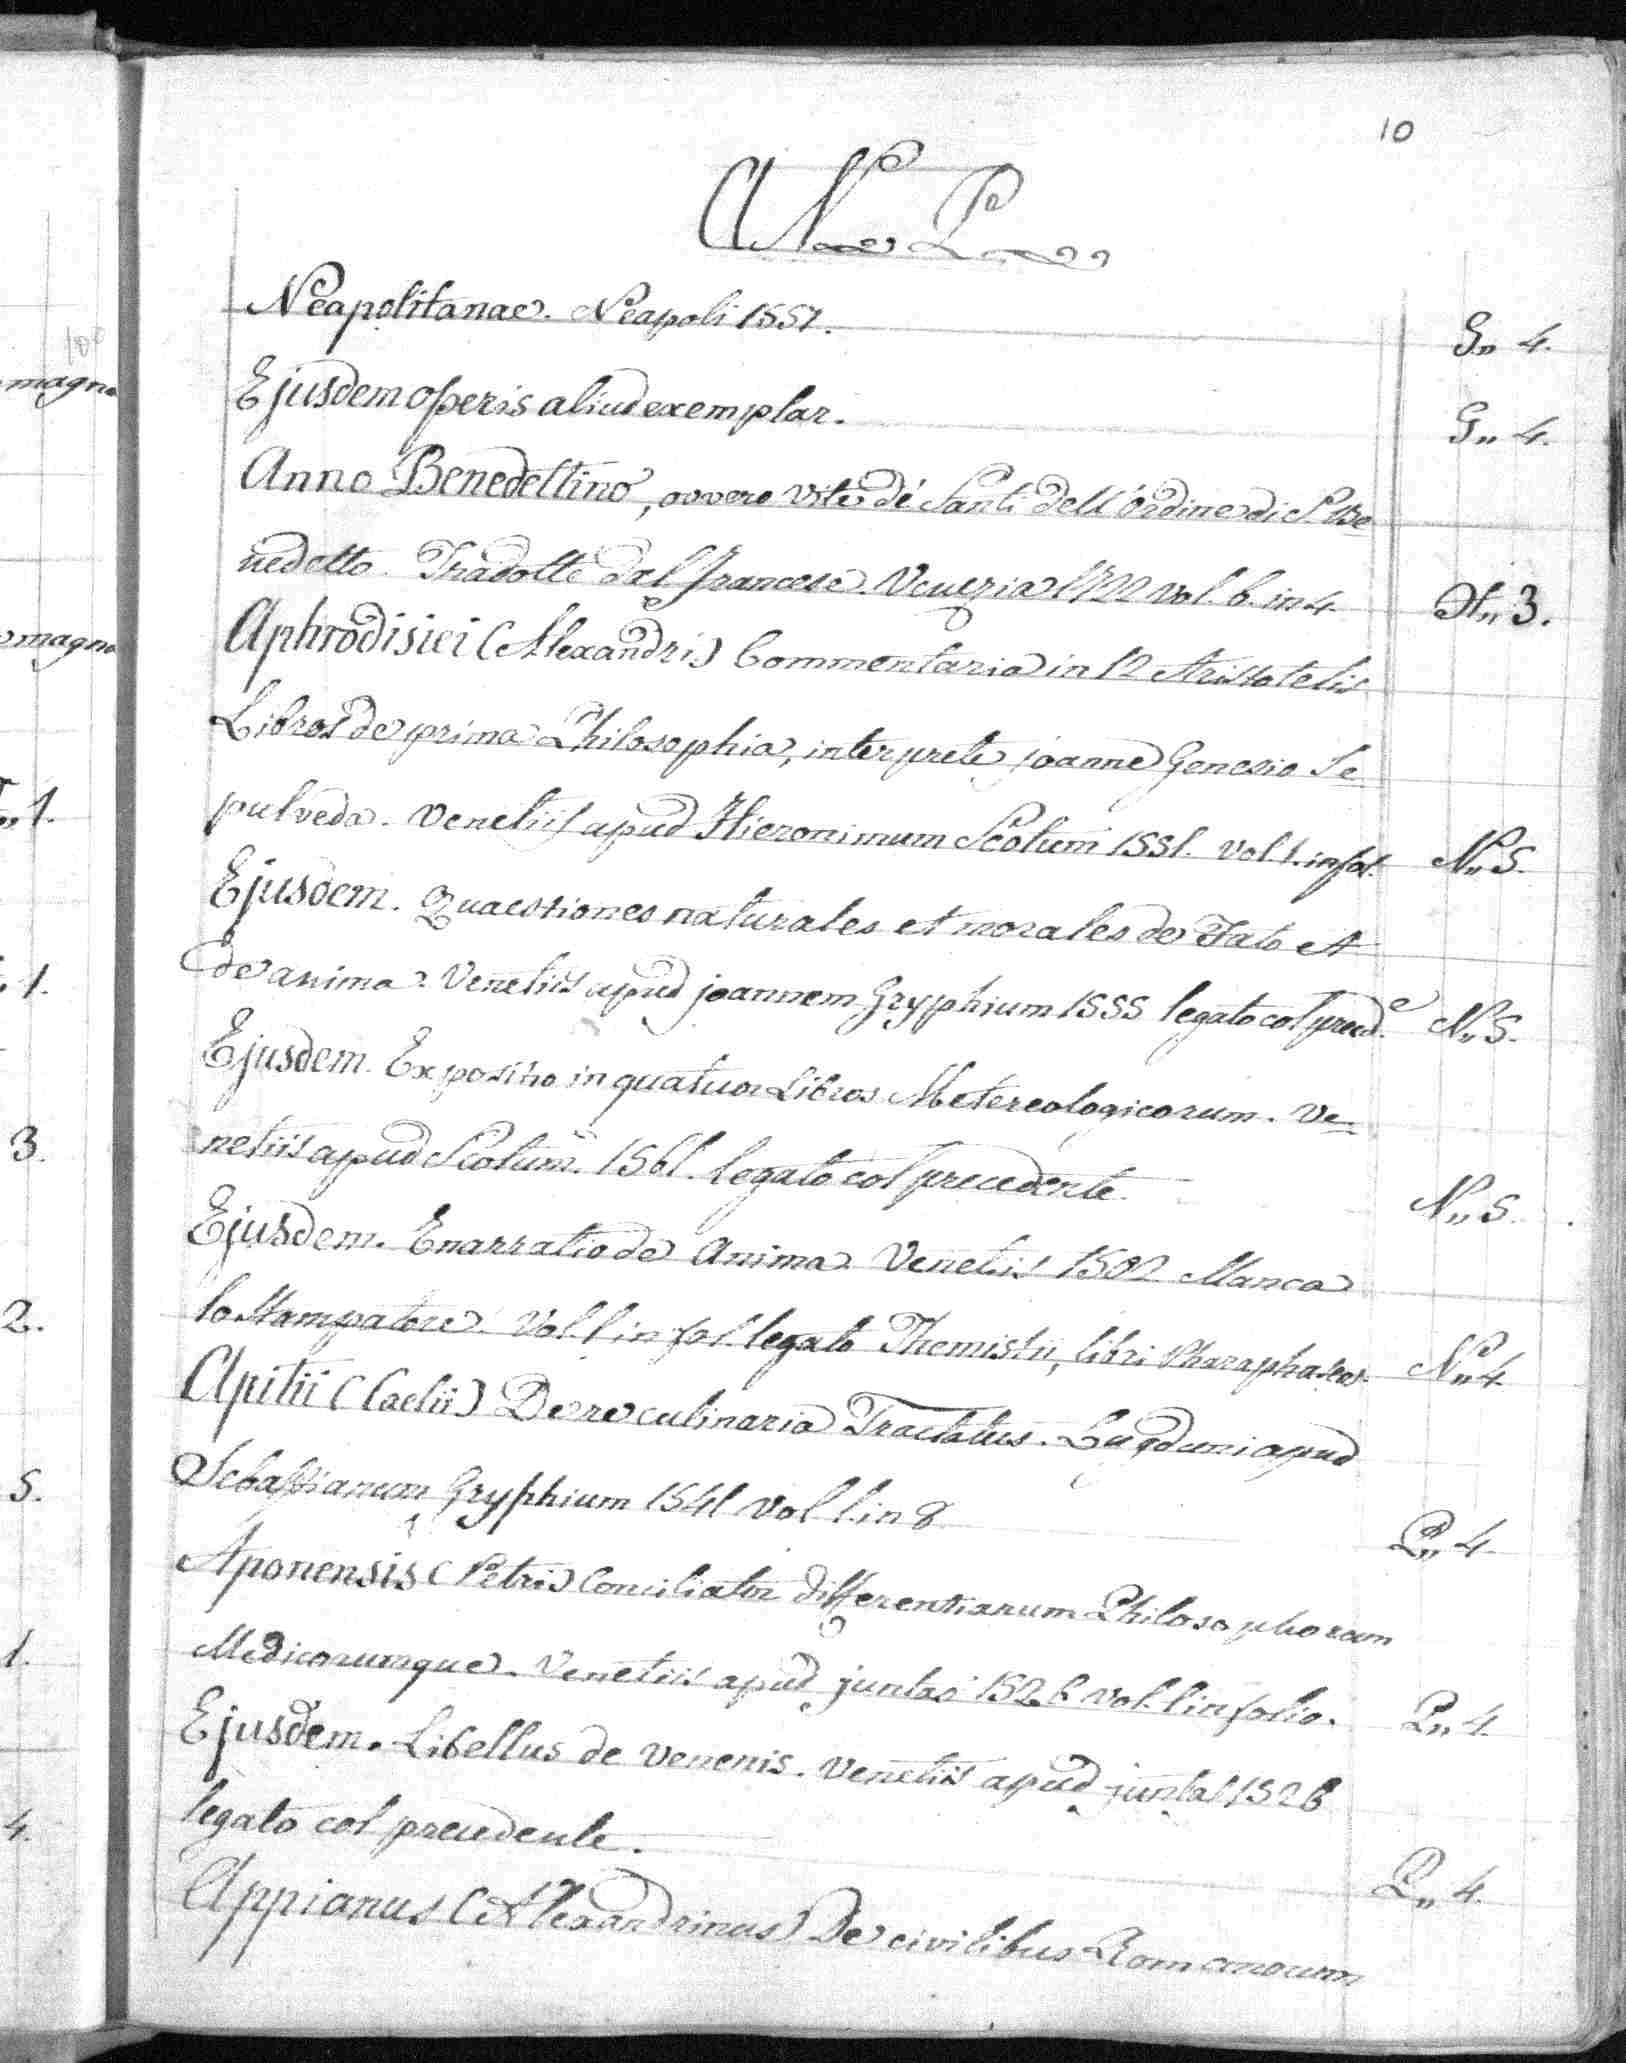 10
A N P
100
Neapolitanae. Neapoli 1557. G,, 4.
magno
Ejusdem operis aliud exemplar. G,, 4.
Anno Benedettino, ovvero vite de' Santi dell'Ordine di S. Be=
nedetto. Tradotte dal francese. Venezia 1722 vol. 6. in 4. H,, 3.
magno
Aphrodisiei (Alexandri) Commentaria in 12 Aristotelis
Libros de prima Philosophia, interprete joanne Genesio Se=
,,1.
pulveda. Venetiis apud Hieronimum Scotum 1551. vol 1. in fol. N,, 5.
Ejusdem. Quaestiones naturales et morales de Fato et
,1.
de anima. Venetiis apud joannem Gryphium 1555 legato col preced.e N,, 5.
Ejusdem. Expositio in quatuor Libros Metereologicorum. Ve=
3.
netiis apud Scotum. 1561. legato col precedente. N,, 5.
Ejusdem. Enarratio de Anima. Venetiis 1502 Manca
2.
lo Stampatore. Vol. 1 in fol. legato Themistii, libri Pharaphrases. N,, 4.
Apitii (Caelii) De re culinaria Tractatus. Lugduni apud
5.
Sebastianum Gryphium 1541 vol 1. in 8. P,, 4.
Aponensis (Petris) Conciliator differentiarum Philosophorum
1.
Medicorumque. Venetiis apud juntas 1526 vol. 1 in folio. P,, 4.
Ejusdem. Libellus de venenis. Venetiis apud juntas 1526
4.
legato col precedente. P,, 4.
Appianus (Alexandrinus) De civilibus Romanorum